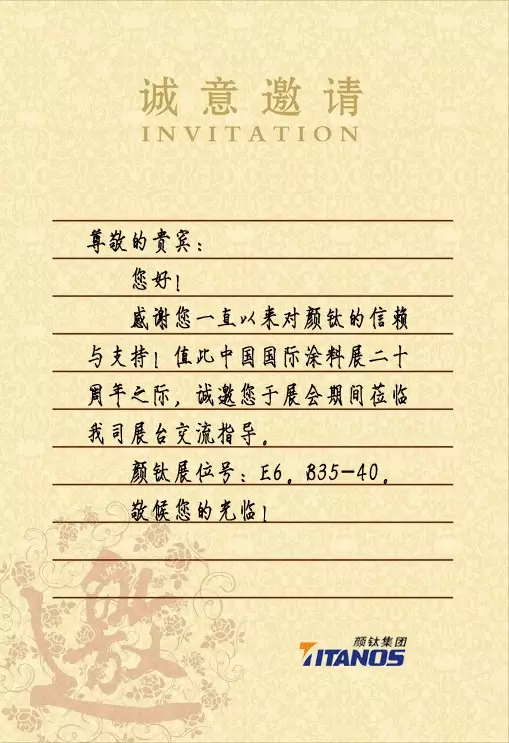 诚意邀请
INVITATION
尊敬的贵宾：
您好！
感谢您一直以来对颜钛的信赖
与支持！值此中国国际涂料展二十
周年之际，诚邀您于展会期间莅临
我司展台交流指导。
颜钛展位号：E6。B35-40。
敬候您的光临！
邀
颜钛集团
TITANOS